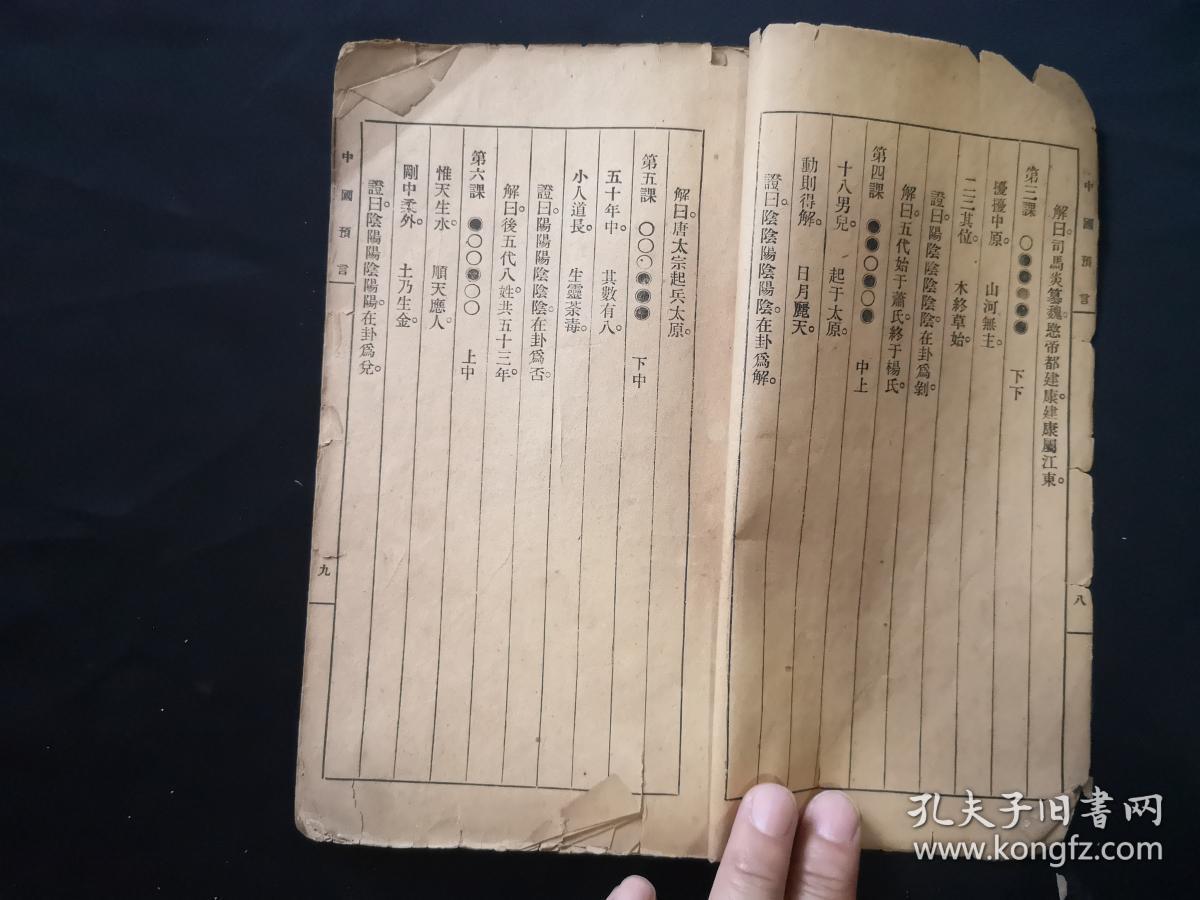 中國預言
八
解曰。司馬炎篡魏。愍帝都建康。建康屬江東。
第三課 ○●●●●● 下下
擾擾中原。 山河無主。
二三其位。 木終草始。
證曰。陽陰陰陰陰陰。在卦爲剝。
解曰。五代始于蕭氏。終于楊氏。
第四課 ●●○●○● 中上
十八男兒。 起于太原。
動則得解。 日月麗天。
證曰。陰陰陽陰陽陰。在卦爲解。
解曰。唐太宗起兵太原。
第五課 ○○○●●● 下中
五十年中。 其數有八。
小人道長。 生靈荼毒。
證曰。陽陽陽陰陰陰。在卦爲否。
解曰。後五代八姓共五十三年。
第六課 ●○○●○○ 上中
惟天生水。 順天應人。
剛中柔外。 土乃生金。
證曰。陰陽陽陰陽陽。在卦爲兌。
中國預言
九
孔夫子旧書网
www.kongfz.com